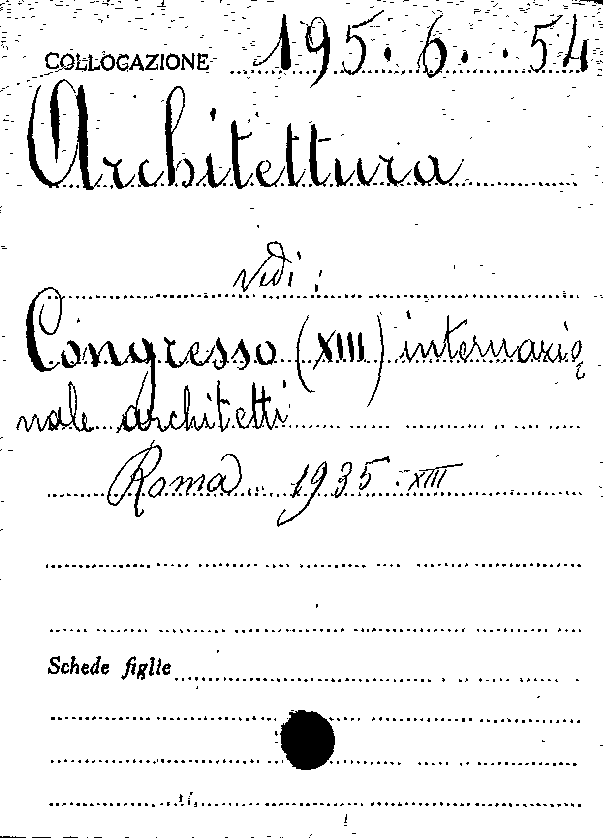 COLLOCAZIONE 195. 6. . 54
Architettura
vedi :
Congresso (XIII) internazio
nale architetti
Roma 1935. XIII
Schede figlie